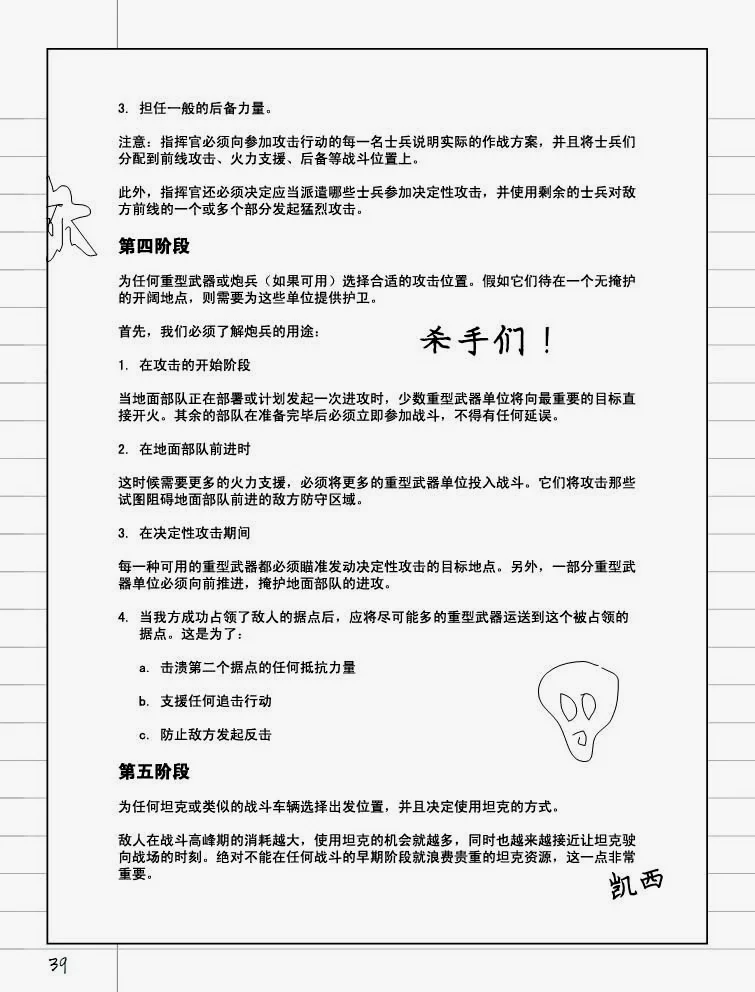 3. 担任一般的后备力量。
注意：指挥官必须向参加攻击行动的每一名士兵说明实际的作战方案，并且将士兵们
分配到前线攻击、火力支援、后备等战斗位置上。
此外，指挥官还必须决定应当派遣哪些士兵参加决定性攻击，并使用剩余的士兵对敌
方前线的一个或多个部分发起猛烈攻击。
第四阶段
为任何重型武器或炮兵（如果可用）选择合适的攻击位置。假如它们待在一个无掩护
的开阔地点，则需要为这些单位提供护卫。
首先，我们必须了解炮兵的用途：
杀手们！
1. 在攻击的开始阶段
当地面部队正在部署或计划发起一次进攻时，少数重型武器单位将向最重要的目标直
接开火。其余的部队在准备完毕后必须立即参加战斗，不得有任何延误。
2. 在地面部队前进时
这时候需要更多的火力支援，必须将更多的重型武器单位投入战斗。它们将攻击那些
试图阻碍地面部队前进的敌方防守区域。
3. 在决定性攻击期间
每一种可用的重型武器都必须瞄准发动决定性攻击的目标地点。另外，一部分重型武
器单位必须向前推进，掩护地面部队的进攻。
4. 当我方成功占领了敌人的据点后，应将尽可能多的重型武器运送到这个被占领的
据点。这是为了：
a. 击溃第二个据点的任何抵抗力量
b. 支援任何追击行动
c. 防止敌方发起反击
第五阶段
为任何坦克或类似的战斗车辆选择出发位置，并且决定使用坦克的方式。
敌人在战斗高峰期的消耗越大，使用坦克的机会就越多，同时也越来越接近让坦克驶
向战场的时刻。绝对不能在任何战斗的早期阶段就浪费贵重的坦克资源，这一点非常
重要。
凯西
39